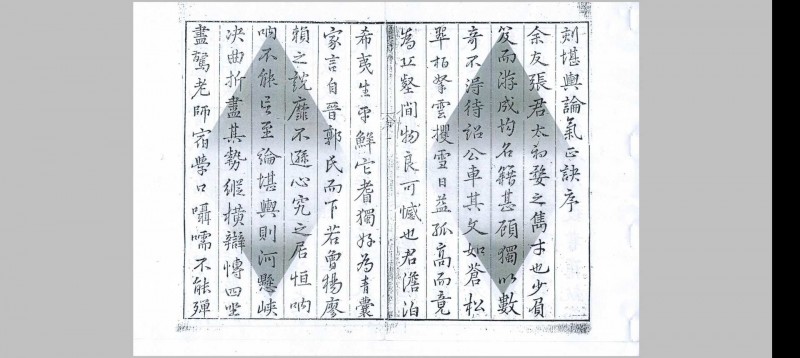 刻堪輿論氣正訣序
余友張君太初婺之雋才也少負
笈而游成均名籍甚碩獨以數
奇不淂待詔公車其文如蒼松
翠柏挐雲攫雪日益孤高而竟
為丘壑間物良可慽也君澹泊
希夷生平鮮它耆獨好為青囊
家言自晉郭氏而下若曾楊廖
賴之說靡不遜心究之居恒吶
吶不能言至論堪輿則河懸峽
决曲折盡其勢縱橫辯慱四坐
盡驚老師宿學口囁嚅不能殫